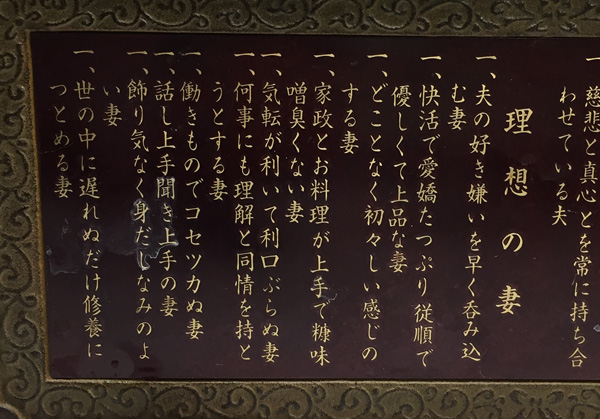 一、慈悲と真心とを常に持ち合
わせている夫
理想の妻
一、夫の好き嫌いを早く呑み込
む妻
一、快活で愛嬌たっぷり従順で
優しくて上品な妻
一、どことなく初々しい感じの
する妻
一、家政とお料理が上手で糠味
噌臭くない妻
一、気転が利いて利口ぶらぬ妻
一、何事にも理解と同情を持と
うとする妻
一、働きものでコセツカぬ妻
一、話し上手聞き上手の妻
一、飾り気なく身だしなみのよ
い妻
一、世の中に遅れぬだけ修養に
つとめる妻